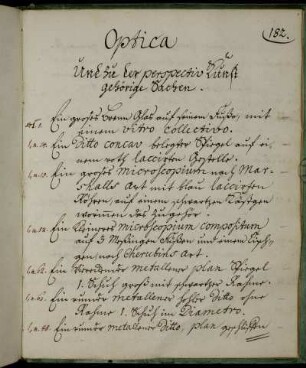 182.
Optica
Und zu der perspectiv Kunst
gehörige Sachen.
Ein großes Brenn Glas auf seinem Fuße, mit
einem vitro collectivo.
Ein Ditto concav belegter Spiegel auf ei-
nem roth laccirten Gestelle.
Ein großes microscopium nach Mar-
shalls Art mit blau laccirten
Röhren, auf einem schwartzen Kästgen
worinnen das Zugehör.
Ein kleineres microscopium compositum
auf 3 Meßingen Füßen und einem Käst-
gen nach Cherubins Art.
Ein metallener plan Spiegel
1. Schuh groß mit schwartzer Rahme.
Ein runder metallener hohler Ditto ohne
Rahme 1. Schuh im Diametro.
Ein runder metallener Ditto, plan geschliffen